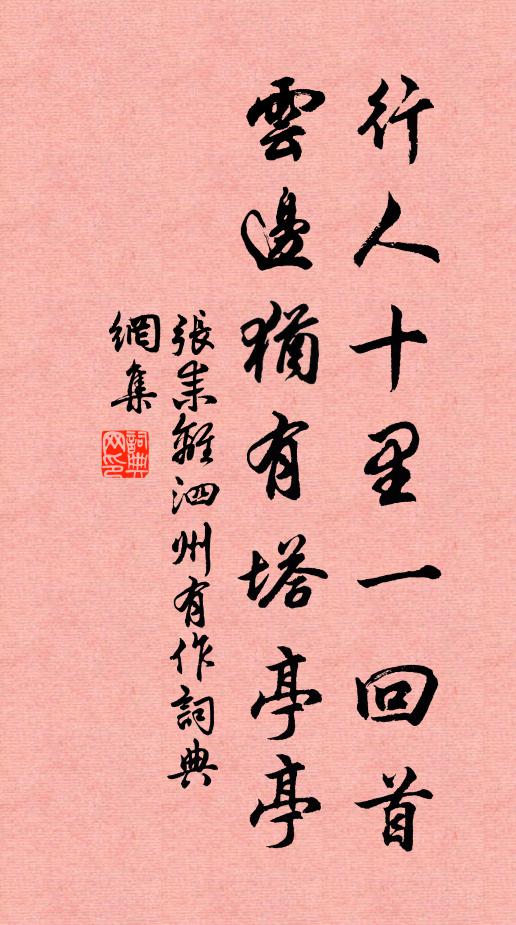 行人十里一回首
雲邊猶有塔亭亭
張耒離泗州有作詞典
網集
詞典
网印